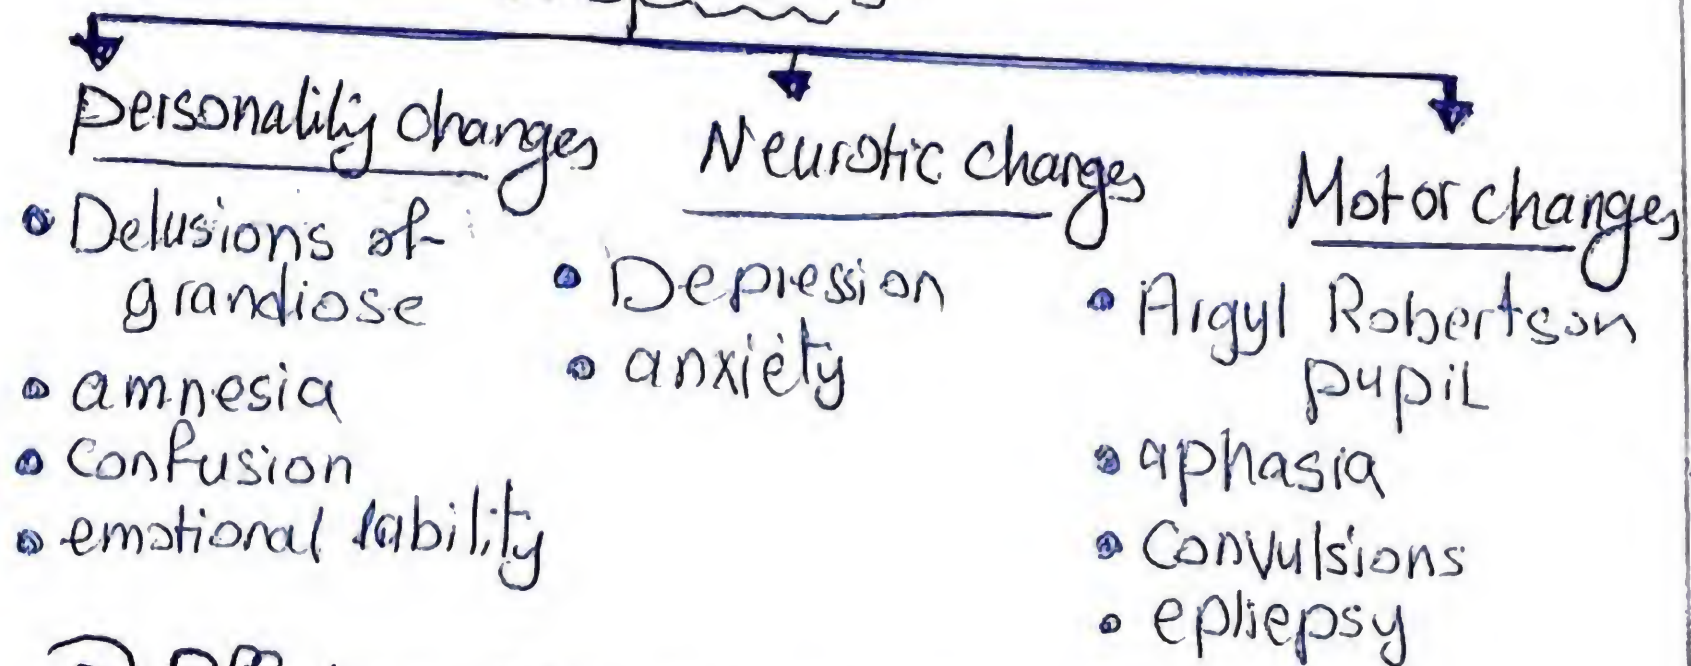 Personality changes
Delusions of
grandiose
amnesia
confusion
emotional lability
Neurotic changes
Depression
anxiety
Motor changes
Argyl Robertson
pupil
aphasia
Convulsions
epliepsy